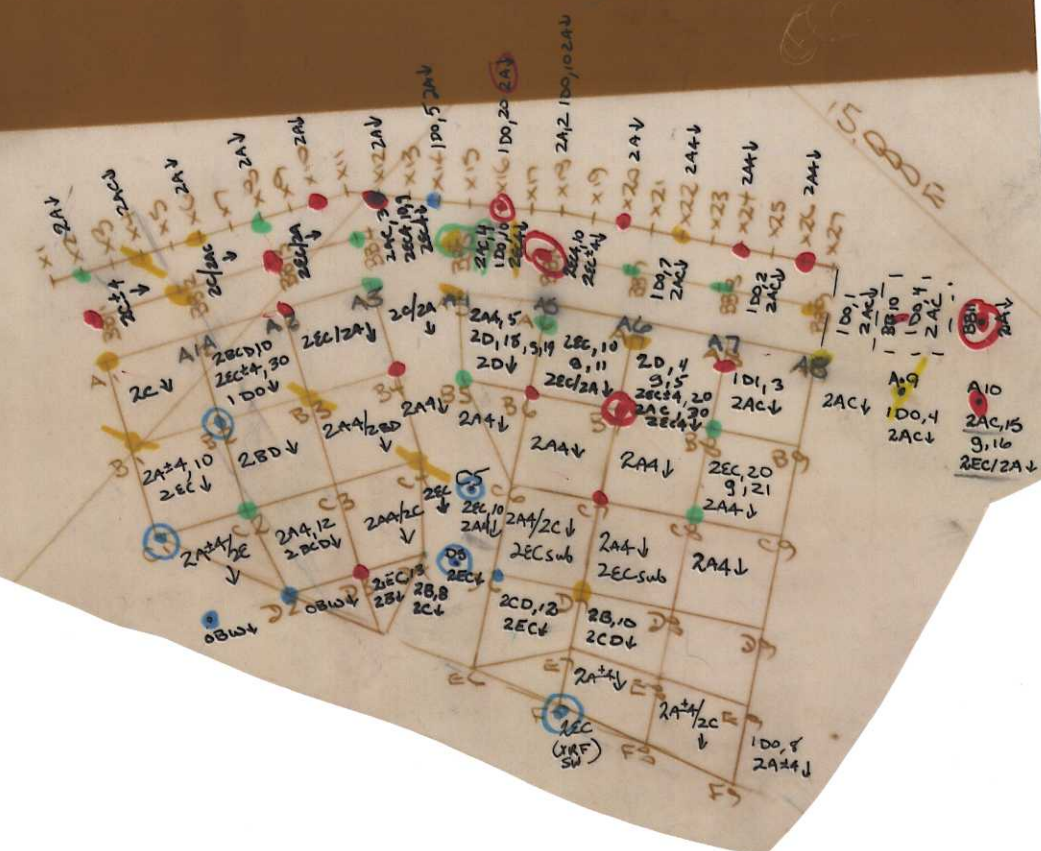 15,000 E
X1
X2
2A↓
X3
X4
2AC↓
X5
X6
2A↓
X7
X8
2A↓
X9
X10
2A↓
X11
X12
2A↓
X13
X14
1D0, 5 2A↓
X15
X16
1D0, 20 2A↓
X17
X18
2A, 2 1D0, 10 2A↓
X19
X20
2A↓
X21
X22
2A4↓
X23
X24
2A4↓
X25
X26
2A4↓
X27
BB1
2C±4
↓
BB2
2C/2AC
↓
BB3
BB4
2AC, 3
2EC4↓
2AC, 4
1D0, 10
2EC4↓
2EC4, 10
2EC±4↓
BB7
1D0, 7
2AC↓
BB8
1D0, 2
2AC↓
BB9
1D0, 1
2AC↓
BB10
1D0, 4
2AC↓
BB11
2A↓
A
A1A
2C↓
2BCD, 10
2EC±4, 30
1D0↓
2EC/2A↓
A3
2C/2A
↓
2A4, 5
2D, 18
2D↓
2EC, 10
9, 11
2EC/2A↓
A6
2D, 4
9, 5
2EC±4, 20
2AC, 30
2EC4↓
A7
1D1, 3
2AC↓
A8
2AC↓
A9
1D0, 4
2AC↓
A10
2AC, 15
9, 16
2EC/2A↓
B
B2
B3
B4
B5
B6
B8
B9
2A±4, 10
2EC↓
2BD↓
2A4/2BD
↓
2A4↓
2A4↓
2A4↓
2A4↓
2EC, 20
9, 21
2A4↓
C1
C2
C3
C5
C6
C7
C8
C9
2A±4/2C
↓
2A4, 12
2BCD↓
2A4/2C
↓
2EC
↓
2EC, 10
2A4↓
2A4/2C↓
2EC sub
2A4↓
2EC sub
2A4↓
D2
D5
2EC↓
D8
D9
0BW↓
0BW↓
2EC, 13
2B↓
2B, 8
2C↓
2CD, 12
2EC↓
2B, 10
2CD↓
E6
E7
E8
E9
2A±4↓
2A±4/2C
↓
1D0, 8
2A±4↓
2EC
(XRF)
SW
F8
F9